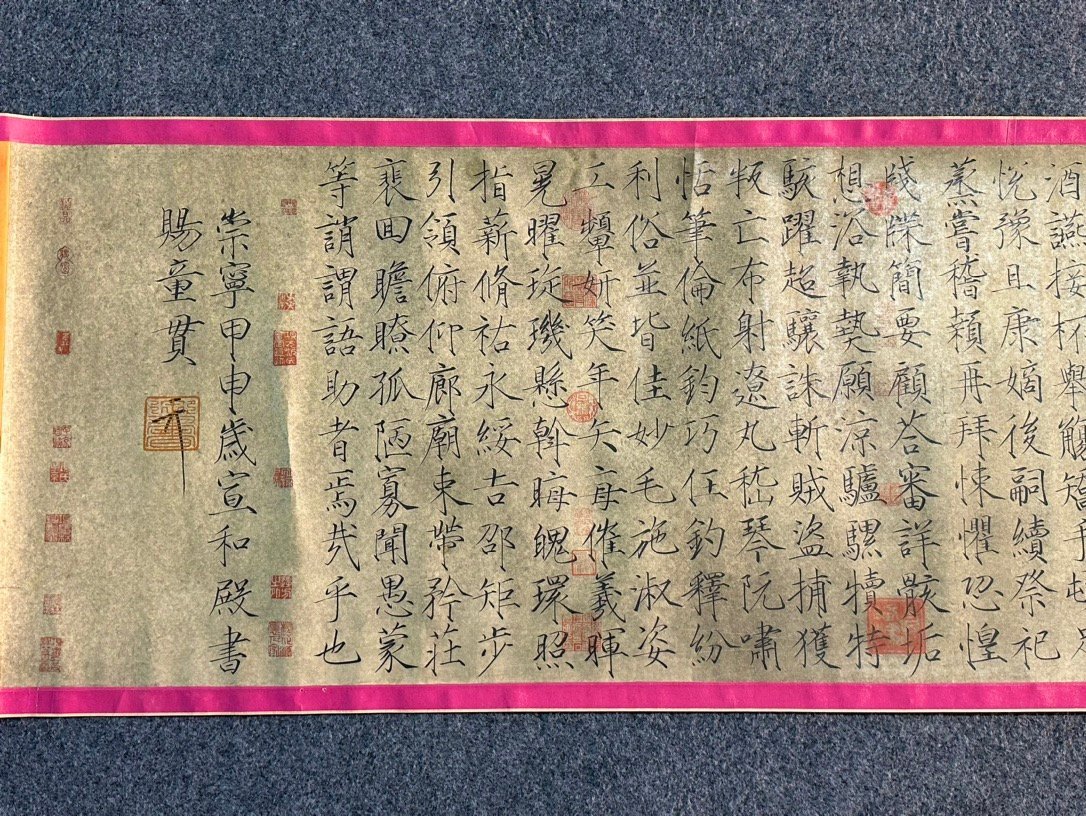 酒讌接杯舉觴矯手頓足
悅豫且康嫡後嗣續祭祀
蒸嘗稽顙再拜悚懼恐惶
牋牒簡要顧答審詳骸垢
想浴執熱願涼驢騾犢特
駭躍超驤誅斬賊盜捕獲
叛亡布射遼丸嵇琴阮嘯
恬筆倫紙鈞巧任釣釋紛
利俗並皆佳妙毛施淑姿
工顰妍笑年矢每催羲暉
晃曜琁璣懸斡晦魄環照
指薪脩祐永綏吉邵矩步
引領俯仰廊廟束帶矜莊
裵回瞻眺孤陋寡聞愚蒙
等誚謂語助者焉哉乎也
崇寧甲申歲宣和殿書
賜童貫